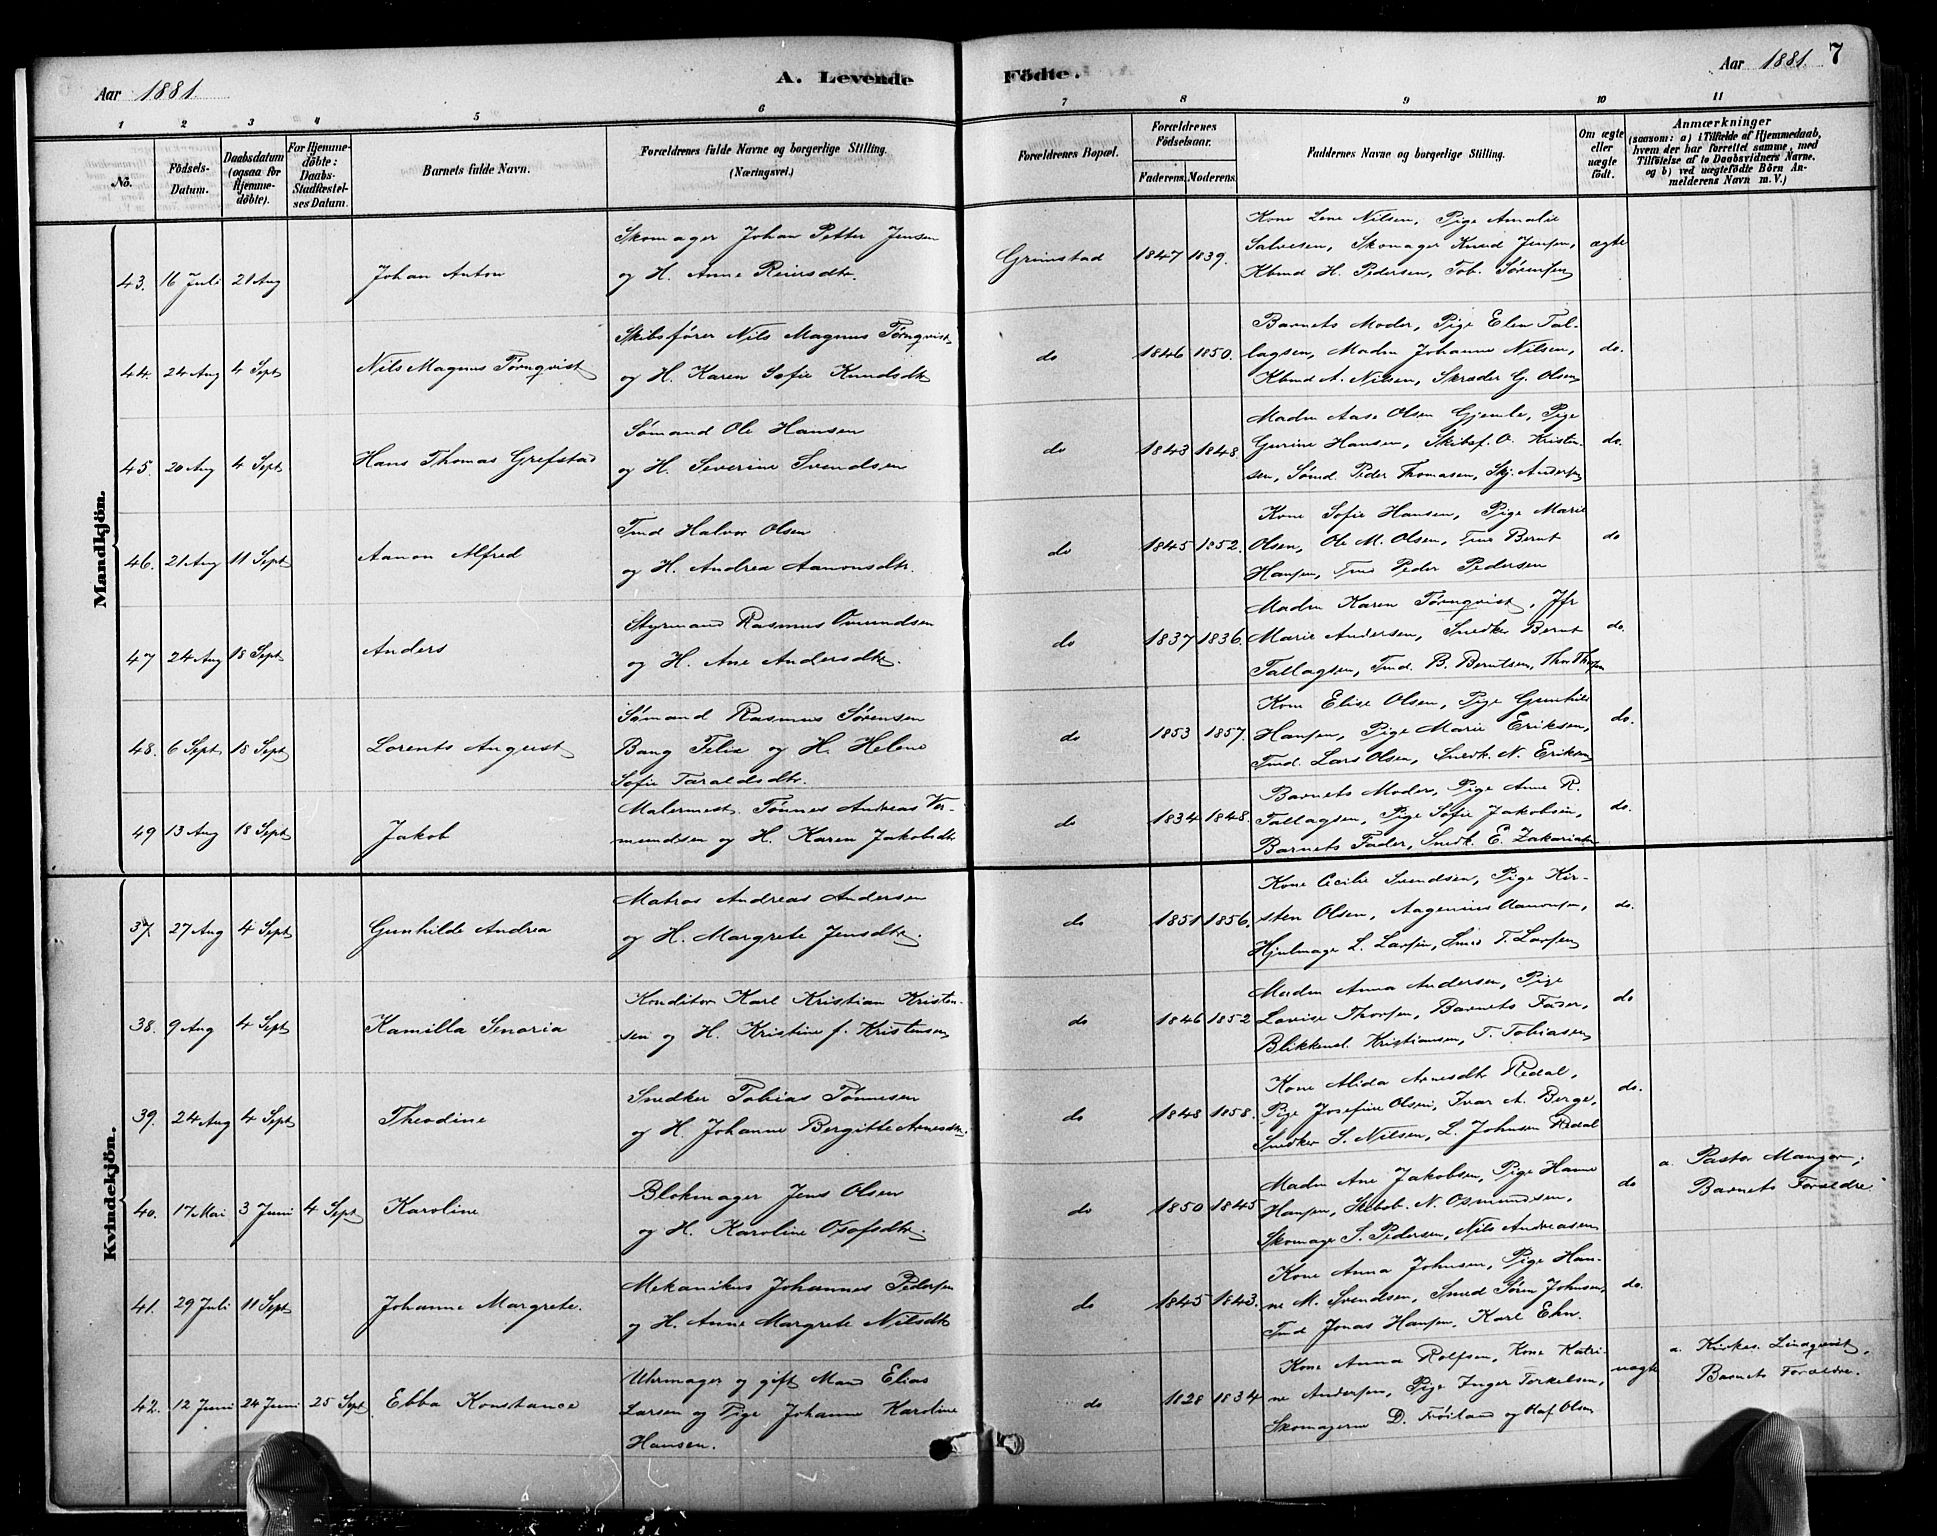 Aar 1881.
A. Levende
Födte.
Aar 1881.
7
1 2 3 4 5 6 7 8 9 10 11
No.
Födsels-
Datum.
Daabsdatum
(ogsaa for
Hjemme-
döbte).
For Hjemme-
döbte:
Daabs-
Stadfæstel-
ses Datum.
Barnets fulde Navn.
Forældrenes fulde Navne og borgerlige Stilling.
(Næringsvei.)
Forældrenes Bopæl.
Forældrenes
Födselsaar.
Faderens. Moderens.
Faddernes Navne og borgerlige Stilling.
Om ægte
eller
uægte
født.
Anmærkninger
(saasom: a) i Tilfælde af Hjemmedaab,
hvem der har forrettet samme, med
Tilföielse af to Daabsvidners Navne,
og b) ved uægtefödte Börn An-
melderens Navn m. V.)
Mandkjön.
43. 16 Juli 21 Aug
Johan Anton
Skomager Johan Petter Jensen
og H. Anne Reiersdtr.
Grimstad
1847 1839.
Kone Lene Nilsen, Pige Amalie
Salvesen, Skomager Knud Jensen,
Kbmd H. Pedersen, Tob. Sørensen
ægte
44. 24 Aug 4 Sept
Nils Magnus Tørnqvist
Skibsfører Nils Magnus Tørnqvist
og H. Karen Sofie Knudsdtr
do
1846 1850.
Barnets Moder, Pige Elen Tal-
lagsen, Madm Johanne Nilsen,
Kbmd A. Nilsen, Skræder G. Olsen
do.
45. 20 Aug 4 Sept
Hans Thomas Grefstad
Sømand Ole Hansen
og H. Severine Svendsen
do
1843 1848.
Madm Aase Olsen Gjemle, Pige
Gurine Hansen, Skibsf. O. Kristen-
sen, Sømd. Peder Thomasen, Skj. Andersen
do.
46. 21 Aug 11 Sept
Aanon Alfred
Tmd Halvor Olsen
og H. Andrea Aanonsdtr.
do
1845 1852.
Kone Sofie Hansen, Pige Marie
Olsen, Ole M. Olsen, Tmd Bernt
Hansen, Tmd Peder Pedersen
do
47 24 Aug 18 Sept
Anders
Styrmand Rasmus Omundsen
og H. Ane Andersdtr.
do
1837 1836.
Madm Karen Tørnqvist, Jfr
Marie Andersen, Snedker Bernt
Tallagsen, Tmd. B. Berntsen,
do.
48. 6 Sept. 18 Sept
Lorents August
Sømand Rasmus Sørensen
Bang Felix og H. Helene
Sofie Taraldsdtr.
do
1853 1857.
Kone Elise Olsen, Pige Gunhild
Hansen, Pige Marie Eriksen,
Tmd. Lars Olsen, Snedk. N. Eriksen
do.
49 13 Aug 18 Sept.
Jakob
Malermest. Tønnes Andreas Vor-
mundsen og H. Karen Jakobsdtr
do
1834 1848.
Barnets Moder, Pige Anne R.
Tallagsen, Pige Sofie Jakobsen,
Barnets Fader, Snedk. E. Zakariasen
do.
Kvindekjön.
37. 27 Aug 4 Sept
Gunhilde Andrea
Matros Andreas Andersen
og H. Margrete Jensdtr.
do
1851 1856.
Kone Cecilie Svendsen, Pige Kir-
sten Olsen, Aagenius Aanonsen,
Hjulmager L. Larsen, Smed T. Larsen
do.
38. 9 Aug 4 Sept
Kamilla Senoria
Konditor Karl Kristian Kristen-
sen og H. Kristine f. Kristensen
do
1846 1852
Madm Anna Andersen, Pige
Lovise Thorsen, Barnets Fader,
Blikkensl. Kristiansen, T. Tobiasen
do
39. 24 Aug 4 Sept
Theodine
Snedker Tobias Tønnesen
og H. Johanne Bergitte Arnesdtr.
do
1848 1858.
Kone Alida Arnesdtr Redal,
Pige Josefine Olsen, Ivar A. Berge,
Snedker S. Nilsen, L. Johnsen Redal
do.
40. 17 Mai 3 Juni 4 Sept
Karoline
Blokmager Jens Olsen
og H. Karoline Osofsdtr.
do
1850 1845
Madm Ane Jakobsen, Pige Hanne
Hansen, Skibsb. N. Osmundsen,
Skomager S. Pedersen, Nils Andreasen
do
a. Pastor Manger;
Barnets Forældre
41. 29 Juli 11 Sept
Johanne Margrete.
Mekanikus Johannes Pedersen
og H. Anne Margrete Nilsdtr
do
1845 1843.
Kone Anna Johnsen, Pige Han-
ne M. Svendsen, Smed Søren Johnsen,
Tmd Jonas Hansen, Karl Ehn.
do.
42. 12 Juni 24 Juni 25 Sept.
Ebba Konstance
Uhrmager og gift Mand Elias
Larsen og Pige Johanne Karoline
Hansen.
do
1828 1834
Kone Anna Rolfsen, Kone Katri-
ne Andersen, Pige Inger Terkelsen,
Skomagerne D. Frøiland og Olaf Olsen
uægte
a. Kirkes. Lindqvist,
Barnets Forældre.